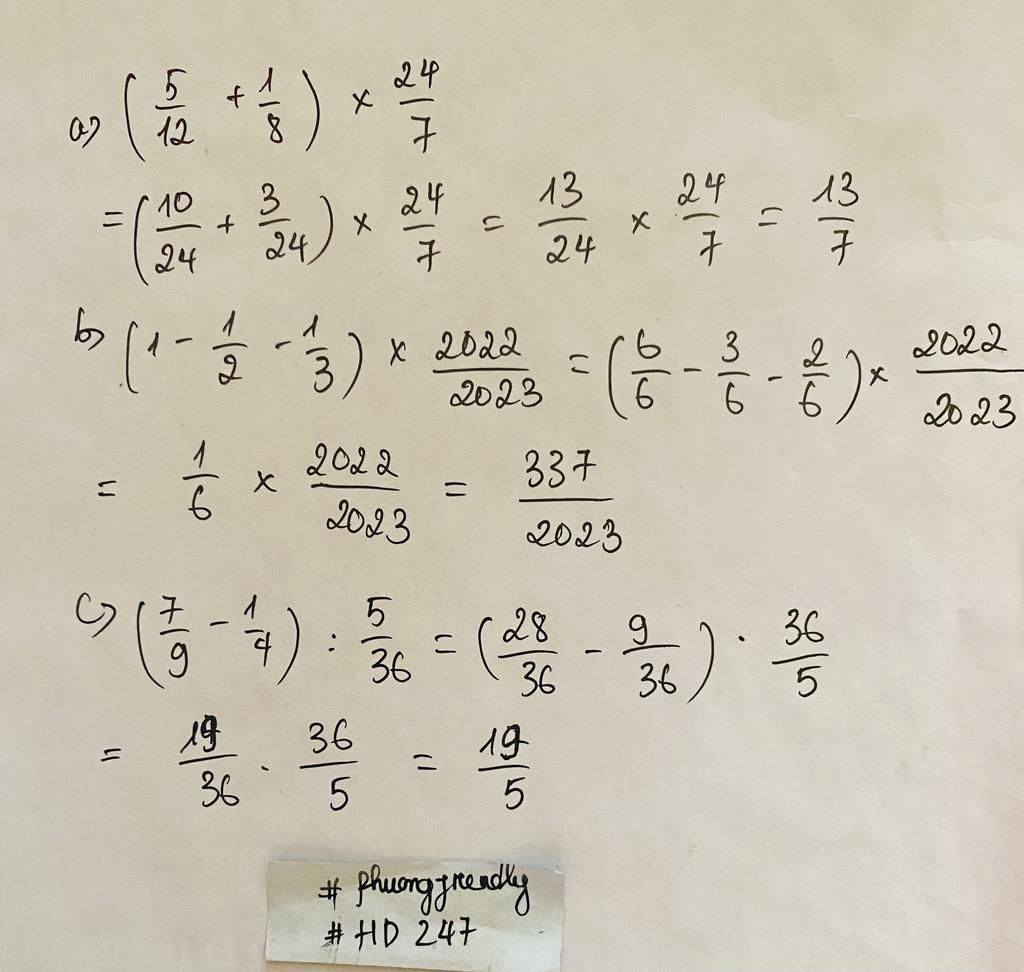 a) (5/12 + 1/8) × 24/7
= (10/24 + 3/24) × 24/7 = 13/24 × 24/7 = 13/7
b) (1 - 1/2 - 1/3) × 2022/2023 = (6/6 - 3/6 - 2/6) × 2022/2023
= 1/6 × 2022/2023 = 337/2023
c) (7/9 - 1/4) : 5/36 = (28/36 - 9/36) . 36/5
= 19/36 . 36/5 = 19/5
# phuongfriendly
# HD 247